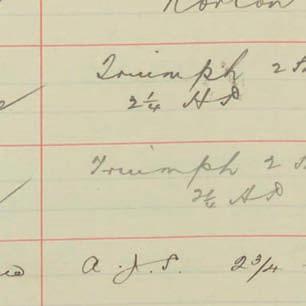 Norton
Triumph 2 S
2¼ H P
Triumph 2 S
2¼ H P
A.J.S. 2¾